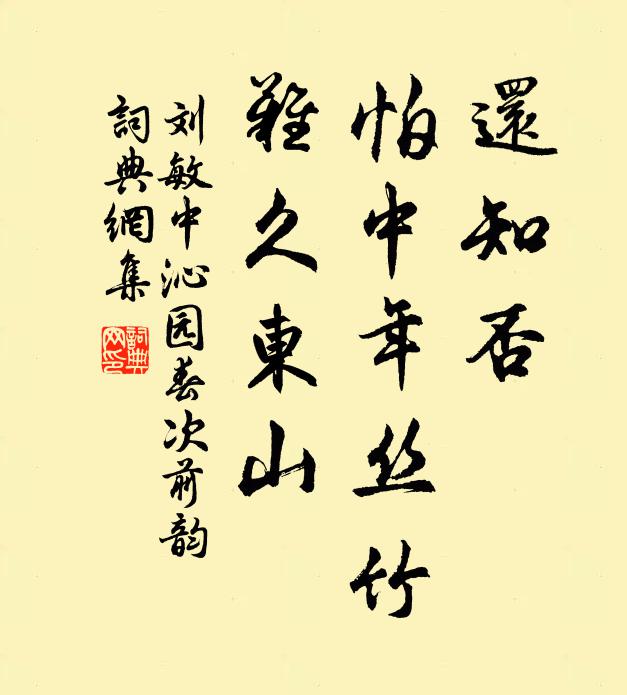 還知否
怕中年丝竹
難久東山
刘敏中沁园春次前韵
詞典網集
詞典网印